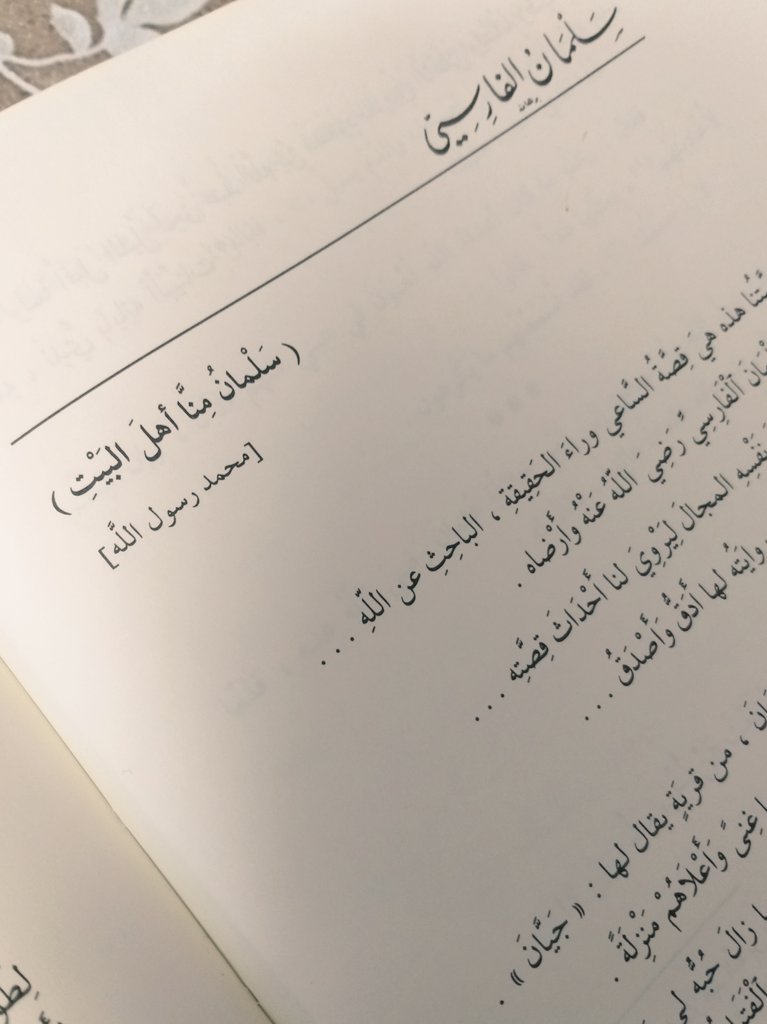 سَلْمَان الفَارِسِيّ
( سَلْمانُ مِنَّا أهلَ البَيْتِ )
[محمد رسول اللَّه]
هذه هيَ قِصَّةُ السَّاعي وراءَ الحَقِيقةِ ، الباحِثِ عن اللَّهِ ...
الْفَارِسِي رَضِيَ اللَّهُ عَنْهُ وأَرْضاه .
المجالَ لِيَرْوِيَ لنا أَحْدَاثَ قِصَّتِهِ ...
لها أَدَقُّ وَأَصْدَقُ ...
، من قريَةٍ يقال لها : « جَيَّانَ » .
غِنىً وَأَعْلَاهُمْ مَنْزِلَةً .
زالَ حُبُّه